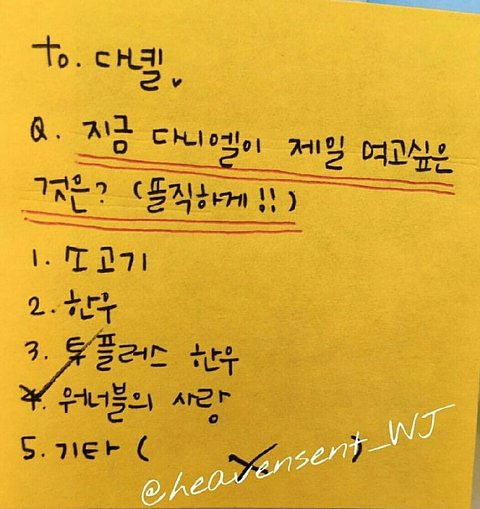 to. 대녤♥
Q. 지금 다니엘이 제일 여고싶은
것은? (솔직하게!!)
1. 소고기
2. 한우
3. 투플러스 한우
4. 워너블의 사랑
5. 기타 ( X )
@heavensent_WJ